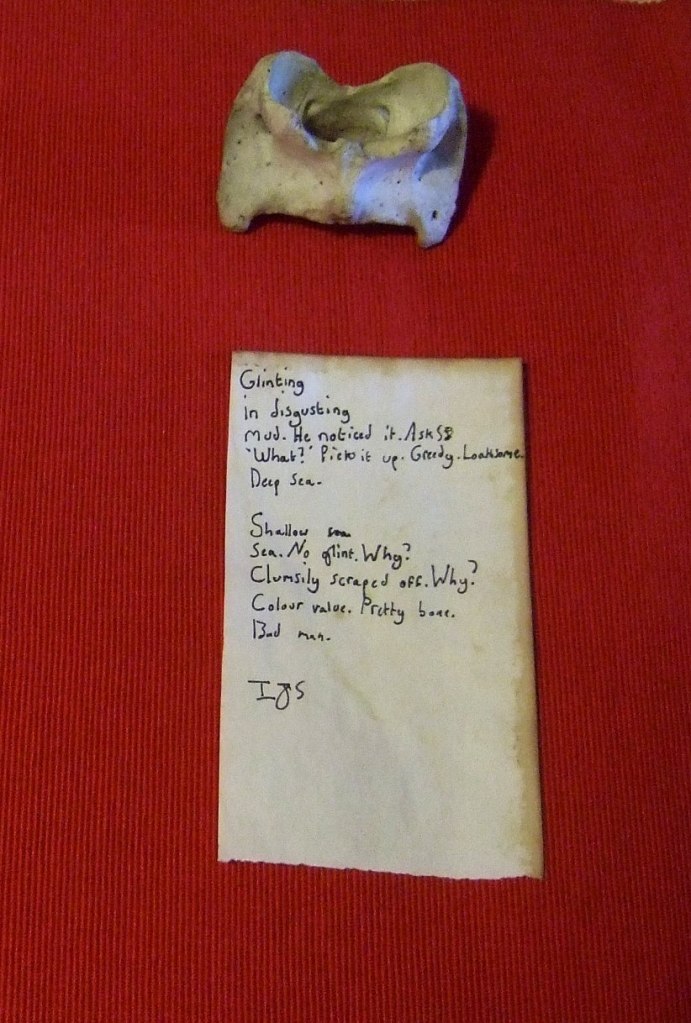 Glinting
in disgusting
mud. He noticed it. Asks
'What?' Picks it up. Greedy. Loathsome.
Deep sea.
Shallow
Sea. No glint. Why?
Clumsily scraped off. Why?
Colour value. Pretty bone.
Bad man.
IJS